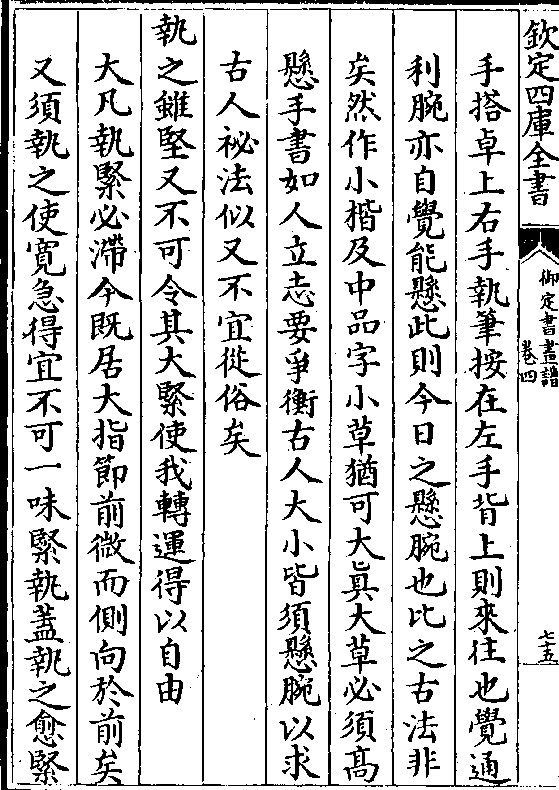 欽定四庫全書
御定書畫譜
卷四
七五
手搭卓上右手執筆按在左手背上則來往也覺通
利腕亦自覺能懸此則今日之懸腕也比之古法非
矣然作小楷及中品字小草猶可大真大草必須髙
懸手書如人立志要爭衡古人大小皆須懸腕以求
古人祕法似又不宜從俗矣
執之雖堅又不可令其大緊使我轉運得以自由
大凡執緊必滯今既居大指節前微而側向於前矣
又須執之使寛急得宜不可一味緊執蓋執之愈緊